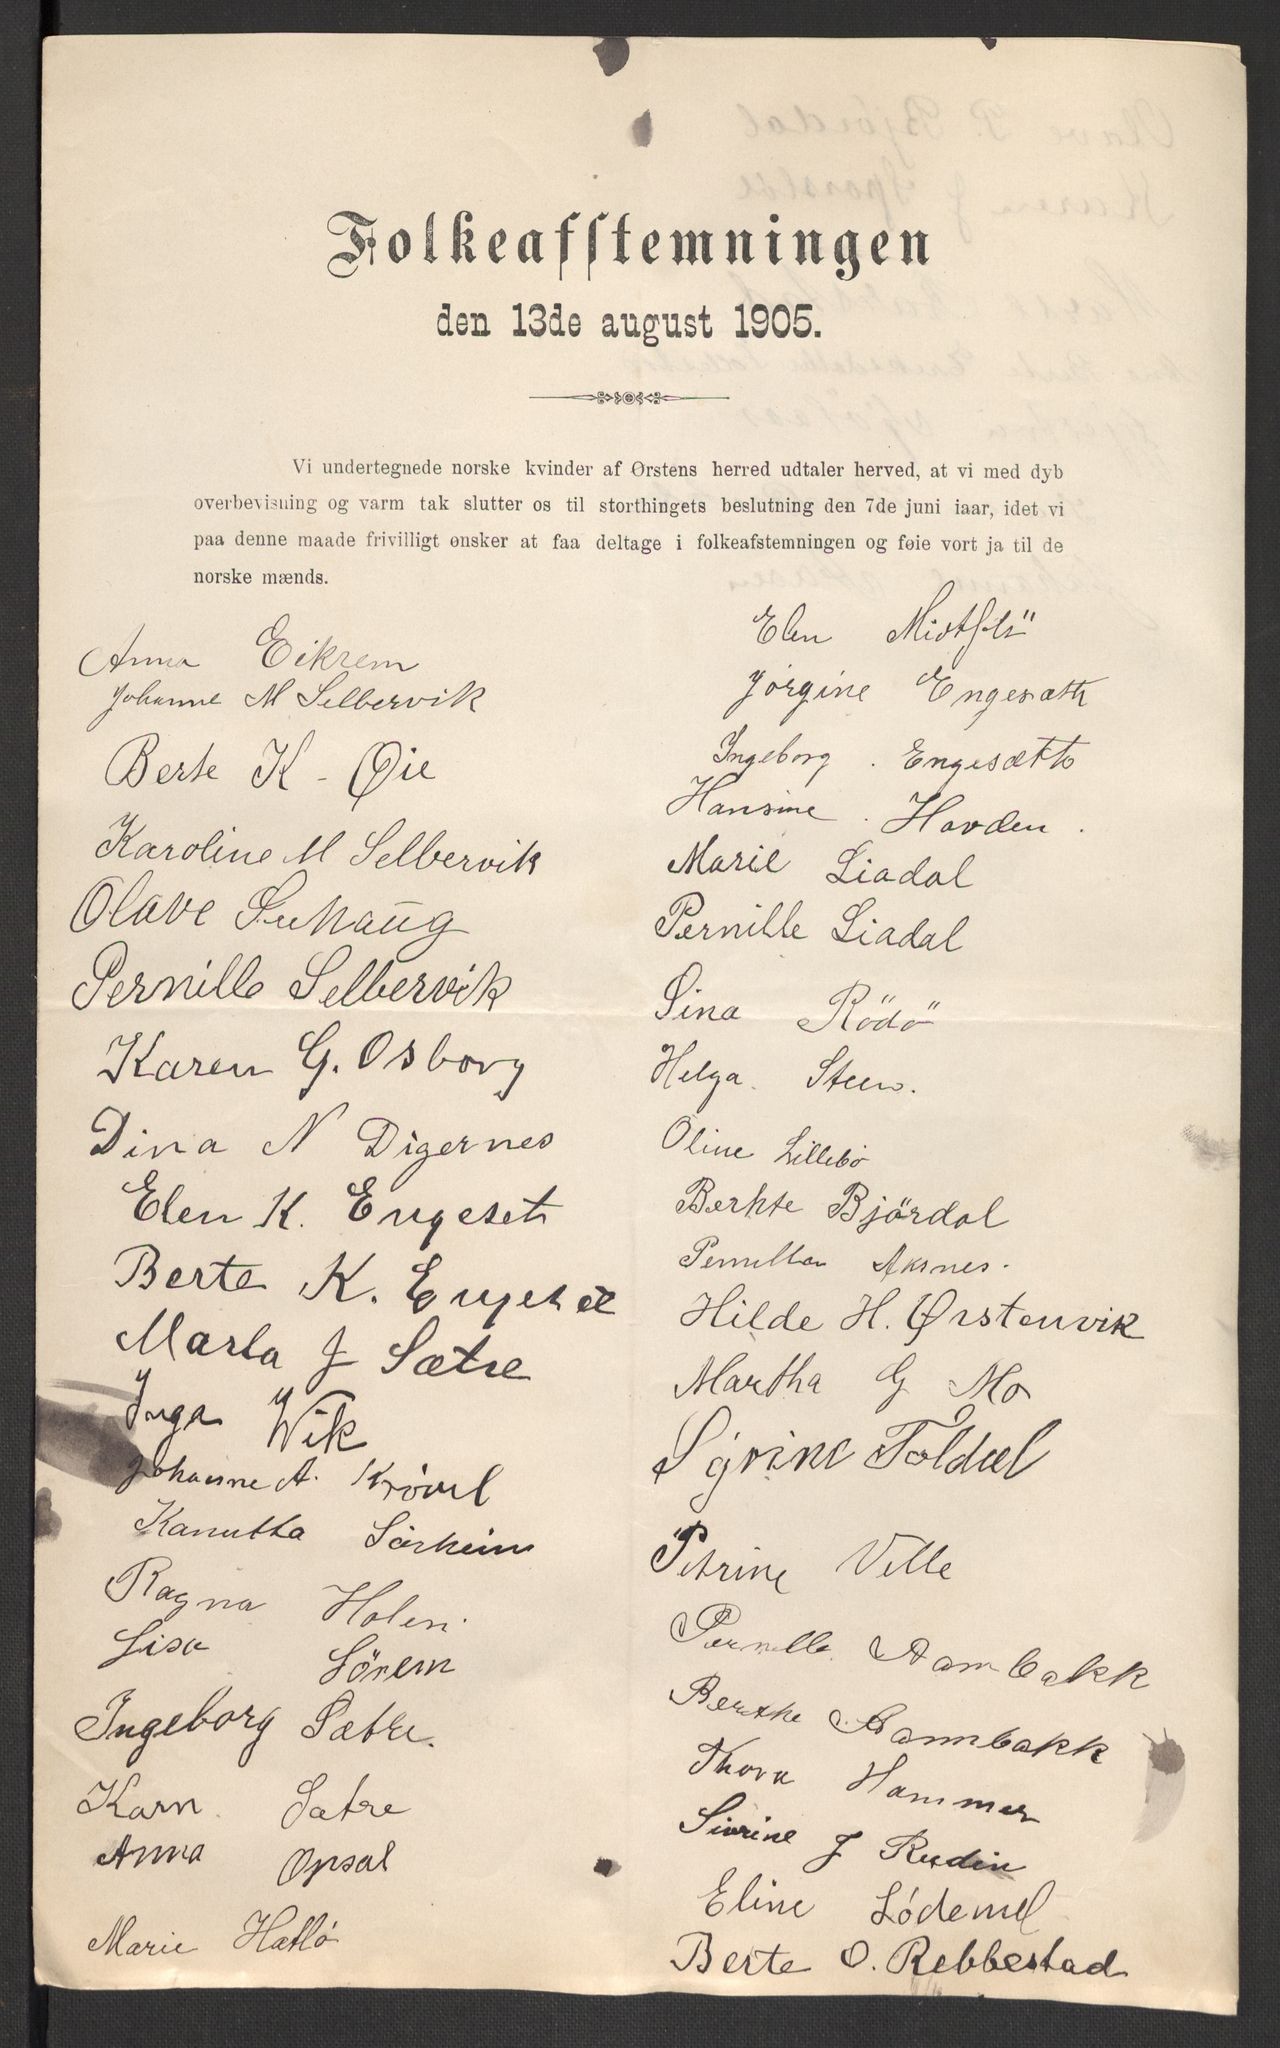 Folkeafstemningen
den 13de august 1905.
Vi undertegnede norske kvinder af Ørstens herred udtaler herved, at vi med dyb
overbevisning og varm tak slutter os til storthingets beslutning den 7de juni iaar, idet vi
paa denne maade frivilligt ønsker at faa deltage i folkeafstemningen og føie vort ja til de
norske mænds.
Anna Eikrem
Johanne M Selbervik
Berte K - Øie
Karoline M Selbervik
Olave
Pernille Selbervik
Karen G. Osborg
Dina N Digernes
Elen K. Engeset
Berte K. Engeset
Marta J Sætre
Inga Wik
Johanne A. Krøvel
Kanutta
Ragna Holen.
Lisa
Ingeborg Sætre.
Karn Sætre
Anna Opsal
Marie Hatlö
Elen
Jörgine Engesæth
Ingeborg . Engesætth
Hansine . Hovden .
Marie Liadal
Pernille Liadal
Sina Rödö
Helga. Steen.
Oline Lillebö
Berhte Björdal
Aksnes.
Hilde H. Ørstenvik
Martha G Mo
Sÿvine Foldal
Petrine Velle
Pernille Aambakk
Berthe Aambakk
Thora Hammer
Sivrine J Rudin
Eline Lödemel
Berte O. Rebbestad